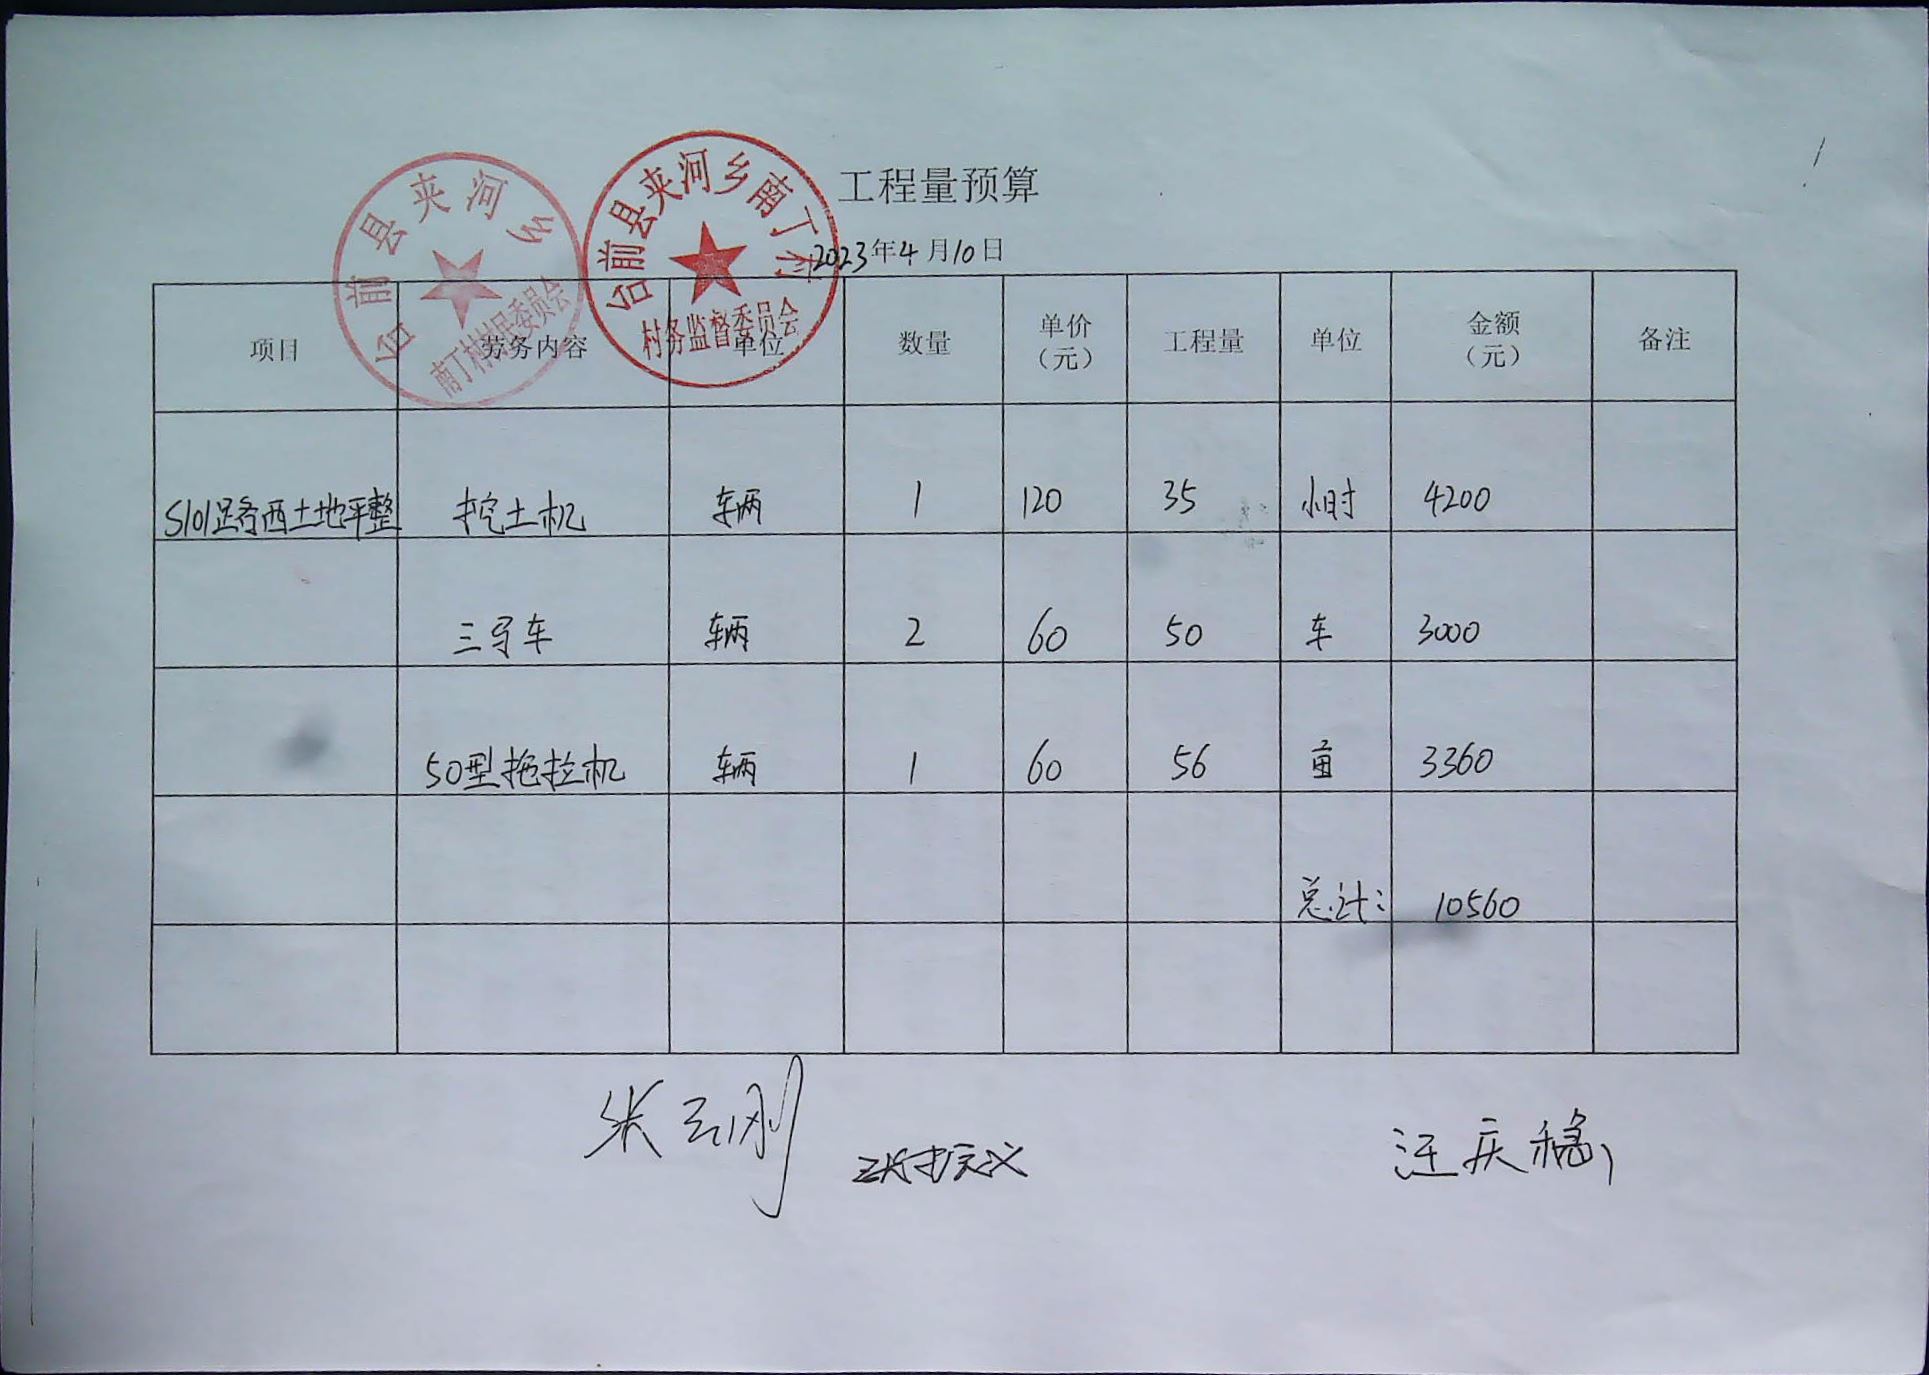 工程量预算
2023年4月10日
台前县夹河乡
南丁村村民委员会
台前县夹河乡南丁村
村务监督委员会
项目 劳务内容 单位 数量 单价（元） 工程量 单位 金额（元） 备注
S101路西土地平整 挖土机 车辆 1 120 35 小时 4200
三马车 车辆 2 60 50 车 3000
50型拖拉机 车辆 1 60 56 亩 3360
总计: 10560